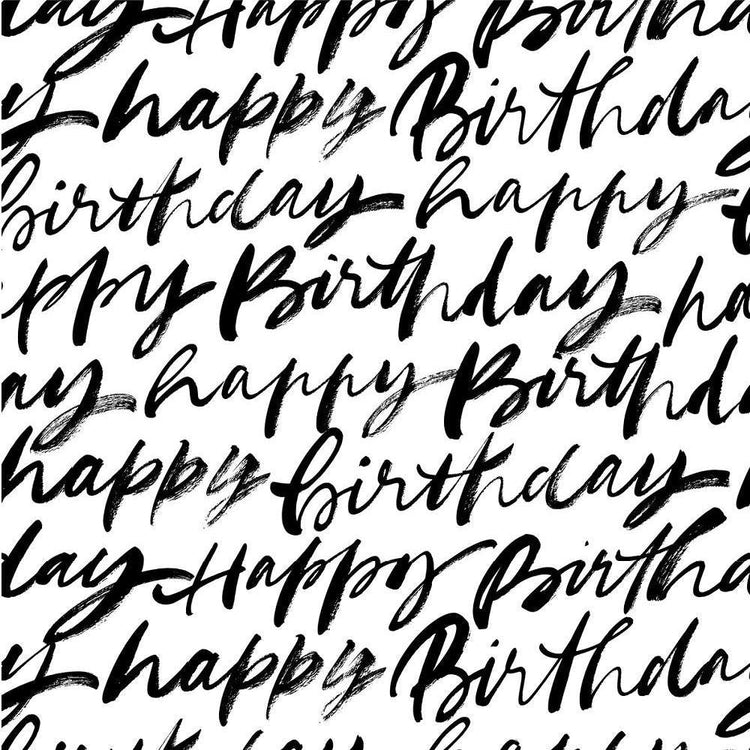 day Happy Birthda
y happy Birthday
birthday happy
appy Birthday ha
ay happy Birthd
happy birthday
day Happy Birtha
y happy Birthday
birthday happy